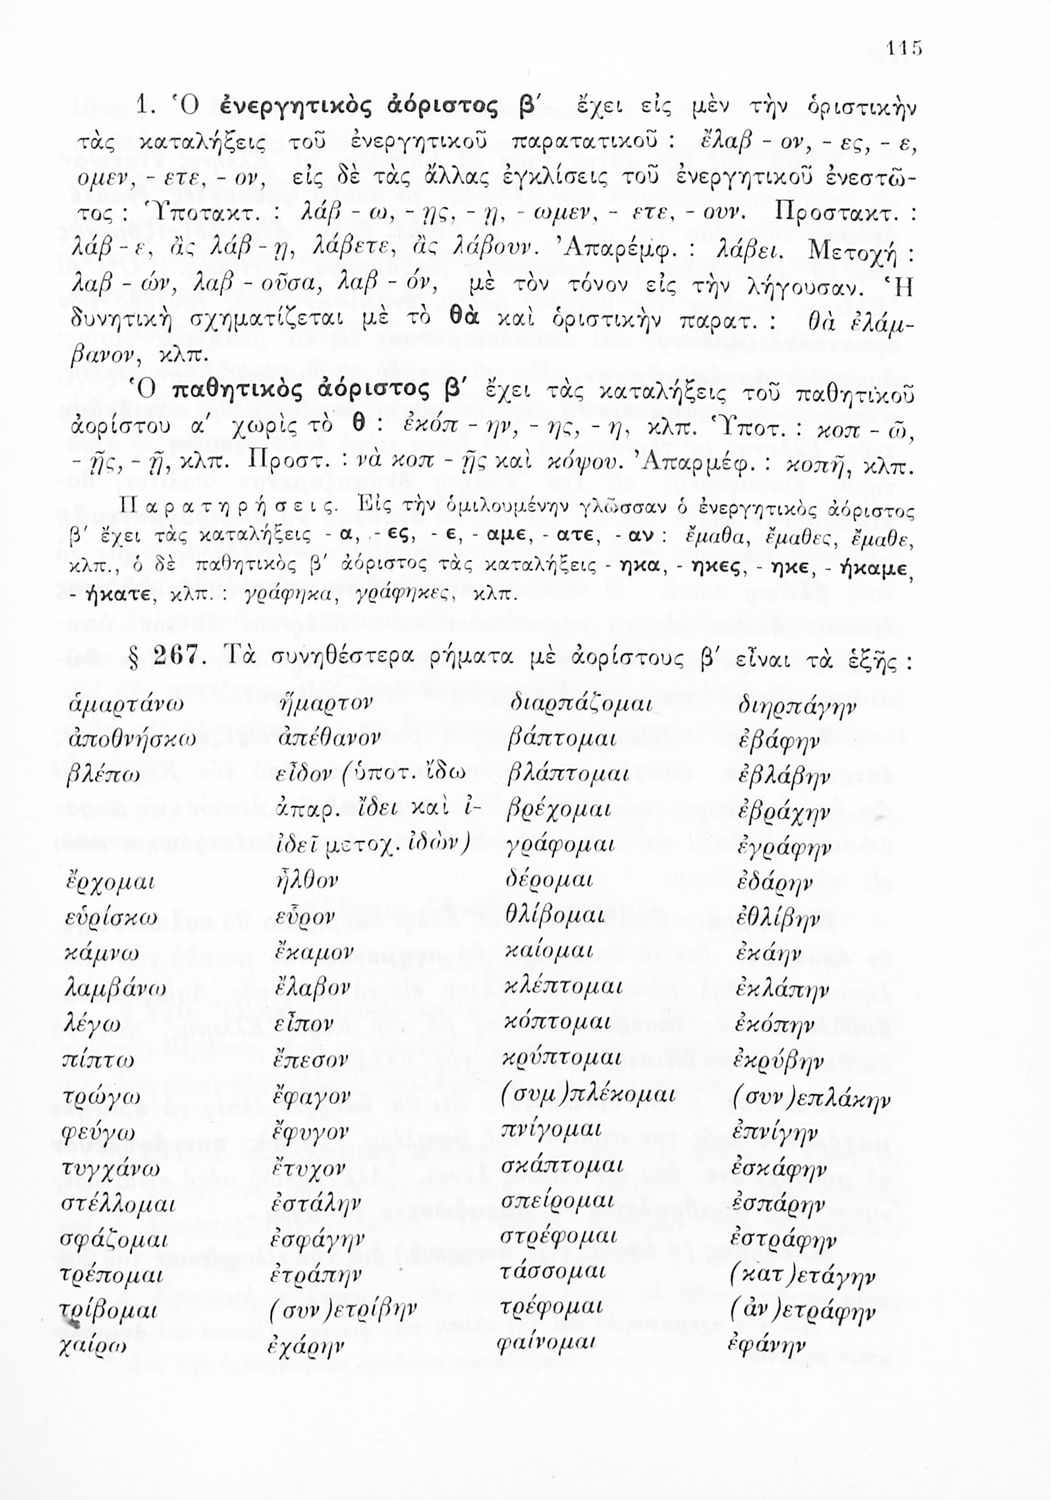 115
1. Ὁ ἐνεργητικὸς ἀόριστος β′ ἔχει εἰς μὲν τὴν ὁριστικὴν
τὰς καταλήξεις τοῦ ἐνεργητικοῦ παρατατικοῦ : ἔλαβ - ον, - ες, - ε,
ομεν, - ετε, - ον, εἰς δὲ τὰς ἄλλας ἐγκλίσεις τοῦ ἐνεργητικοῦ ἐνεστῶ-
τος : Ὑποτακτ. : λάβ - ω, - ῃς, - ῃ, - ωμεν, - ετε, - ουν. Προστακτ. :
λάβ - ε, ἂς λάβ - ῃ, λάβετε, ἂς λάβουν. Ἀπαρέμφ. : λάβει. Μετοχή :
λαβ - ών, λαβ - οῦσα, λαβ - όν, μὲ τὸν τόνον εἰς τὴν λήγουσαν. Ἡ
δυνητικὴ σχηματίζεται μὲ τὸ θὰ καὶ ὁριστικὴν παρατ. : θὰ ἐλάμ-
βανον, κλπ.
Ὁ παθητικὸς ἀόριστος β′ ἔχει τὰς καταλήξεις τοῦ παθητικοῦ
ἀορίστου α′ χωρὶς τὸ θ : ἐκόπ - ην, - ης, - η, κλπ. Ὑποτ. : κοπ - ῶ,
- ῇς, - ῇ, κλπ. Προστ. : νὰ κοπ - ῇς καὶ κόψου. Ἀπαρμέφ. : κοπῆ, κλπ.
Παρατηρήσεις. Εἰς τὴν ὁμιλουμένην γλῶσσαν ὁ ἐνεργητικὸς ἀόριστος
β′ ἔχει τὰς καταλήξεις - α, - ες, - ε, - αμε, - ατε, - αν : ἔμαθα, ἔμαθες, ἔμαθε,
κλπ., ὁ δὲ παθητικὸς β′ ἀόριστος τὰς καταλήξεις - ηκα, - ηκες, - ηκε, - ήκαμε,
- ήκατε, κλπ. : γράφηκα, γράφηκες, κλπ.
§ 267. Τὰ συνηθέστερα ρήματα μὲ ἀορίστους β′ εἶναι τὰ ἑξῆς :
ἁμαρτάνω ἥμαρτον διαρπάζομαι διηρπάγην
ἀποθνήσκω ἀπέθανον βάπτομαι ἐβάφην
βλέπω εἶδον (ὑποτ. ἴδω βλάπτομαι ἐβλάβην
ἀπαρ. ἴδει καὶ ἰ- βρέχομαι ἐβράχην
ἰδεῖ μετοχ. ἰδών) γράφομαι ἐγράφην
ἔρχομαι ἦλθον δέρομαι ἐδάρην
εὑρίσκω εὗρον θλίβομαι ἐθλίβην
κάμνω ἔκαμον καίομαι ἐκάην
λαμβάνω ἔλαβον κλέπτομαι ἐκλάπην
λέγω εἶπον κόπτομαι ἐκόπην
πίπτω ἔπεσον κρύπτομαι ἐκρύβην
τρώγω ἔφαγον (συμ)πλέκομαι (συν)επλάκην
φεύγω ἔφυγον πνίγομαι ἐπνίγην
τυγχάνω ἔτυχον σκάπτομαι ἐσκάφην
στέλλομαι ἐστάλην σπείρομαι ἐσπάρην
σφάζομαι ἐσφάγην στρέφομαι ἐστράφην
τρέπομαι ἐτράπην τάσσομαι (κατ)ετάγην
τρίβομαι (συν)ετρίβην τρέφομαι (ἀν)ετράφην
χαίρω ἐχάρην φαίνομαι ἐφάνην